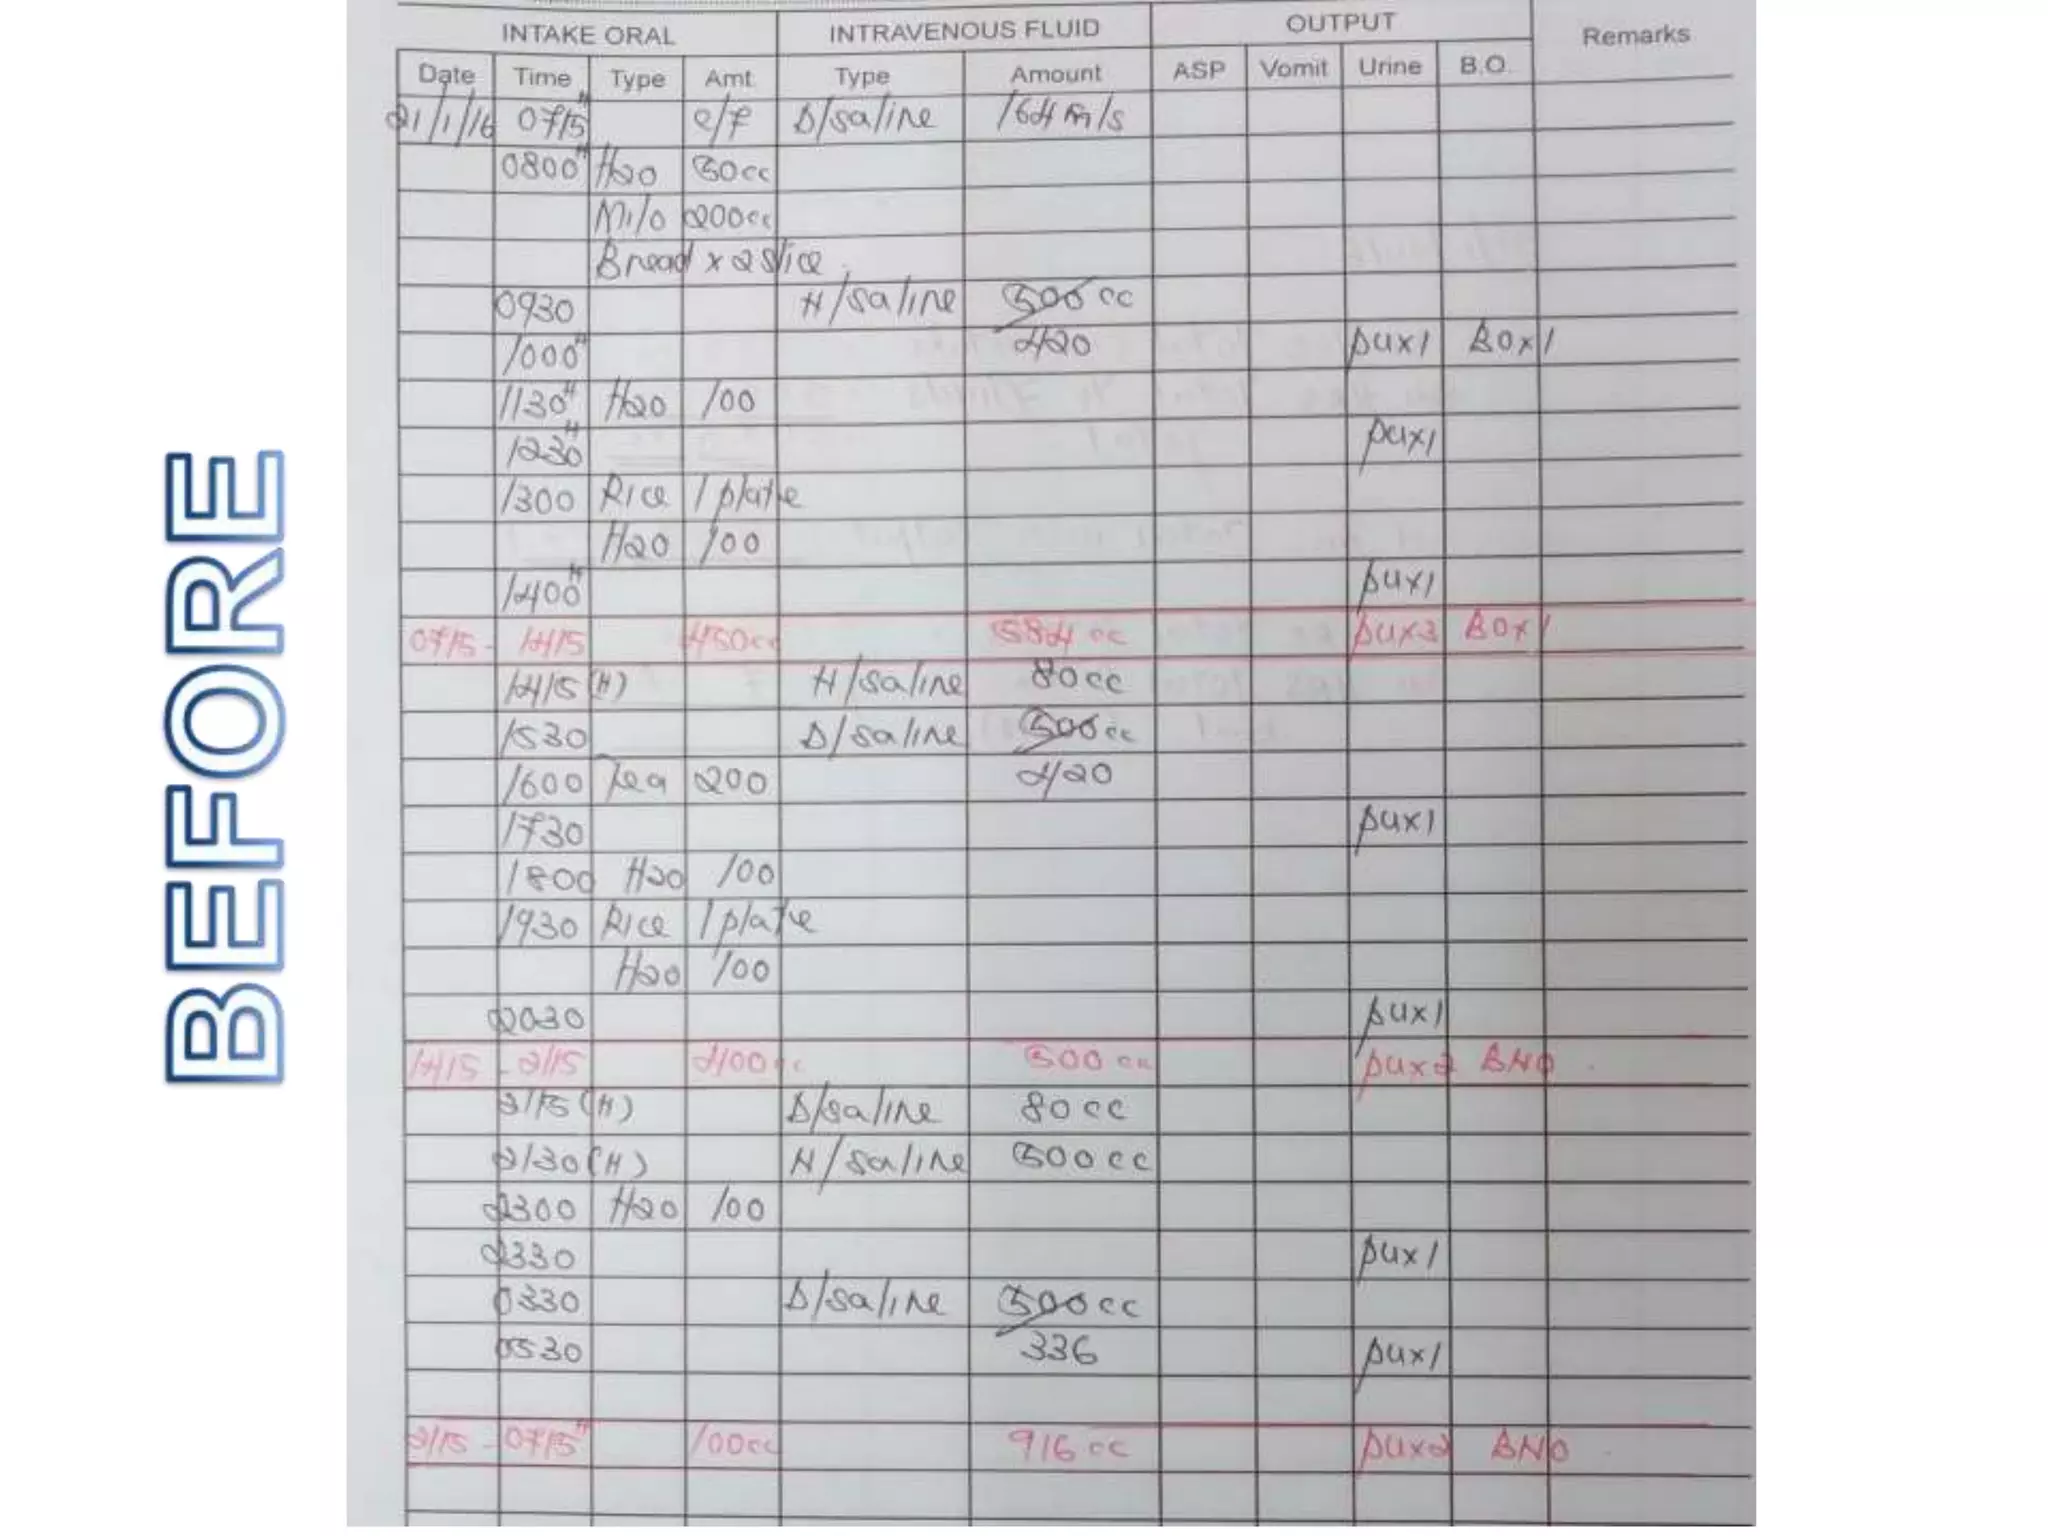 BEFORE
INTAKE ORAL INTRAVENOUS FLUID OUTPUT Remarks
Date Time Type Amt Type Amount ASP Vomit Urine B.O.
21/1/16 0715H c/f D/saline 164 mls
0800H H2O 50cc
Milo 200cc
Bread x 2 slice
0930 N/saline 500 cc
1000H 420 PUx1 BOx1
1130H H2O 100
1230H PUx1
1300 Rice 1 plate
H2O 100
1400H PUx1
0715 - 1415 450cc 584 cc PUx3 BOx1
1415 (H) N/saline 80cc
1530 D/saline 500cc
1600 Tea 200 420
1730 PUx1
1800 H2O 100
1930 Rice 1 plate
H2O 100
2030 PUx1
1415 - 2115 400cc 500 cc PUx2 BNO
2115 (H) D/saline 80cc
2130 (H) N/saline 500cc
2300 H2O 100
2330 PUx1
0330 D/saline 500cc
0530 336 PUx1
2115 - 0715H 100cc 916 cc PUx2 BNO